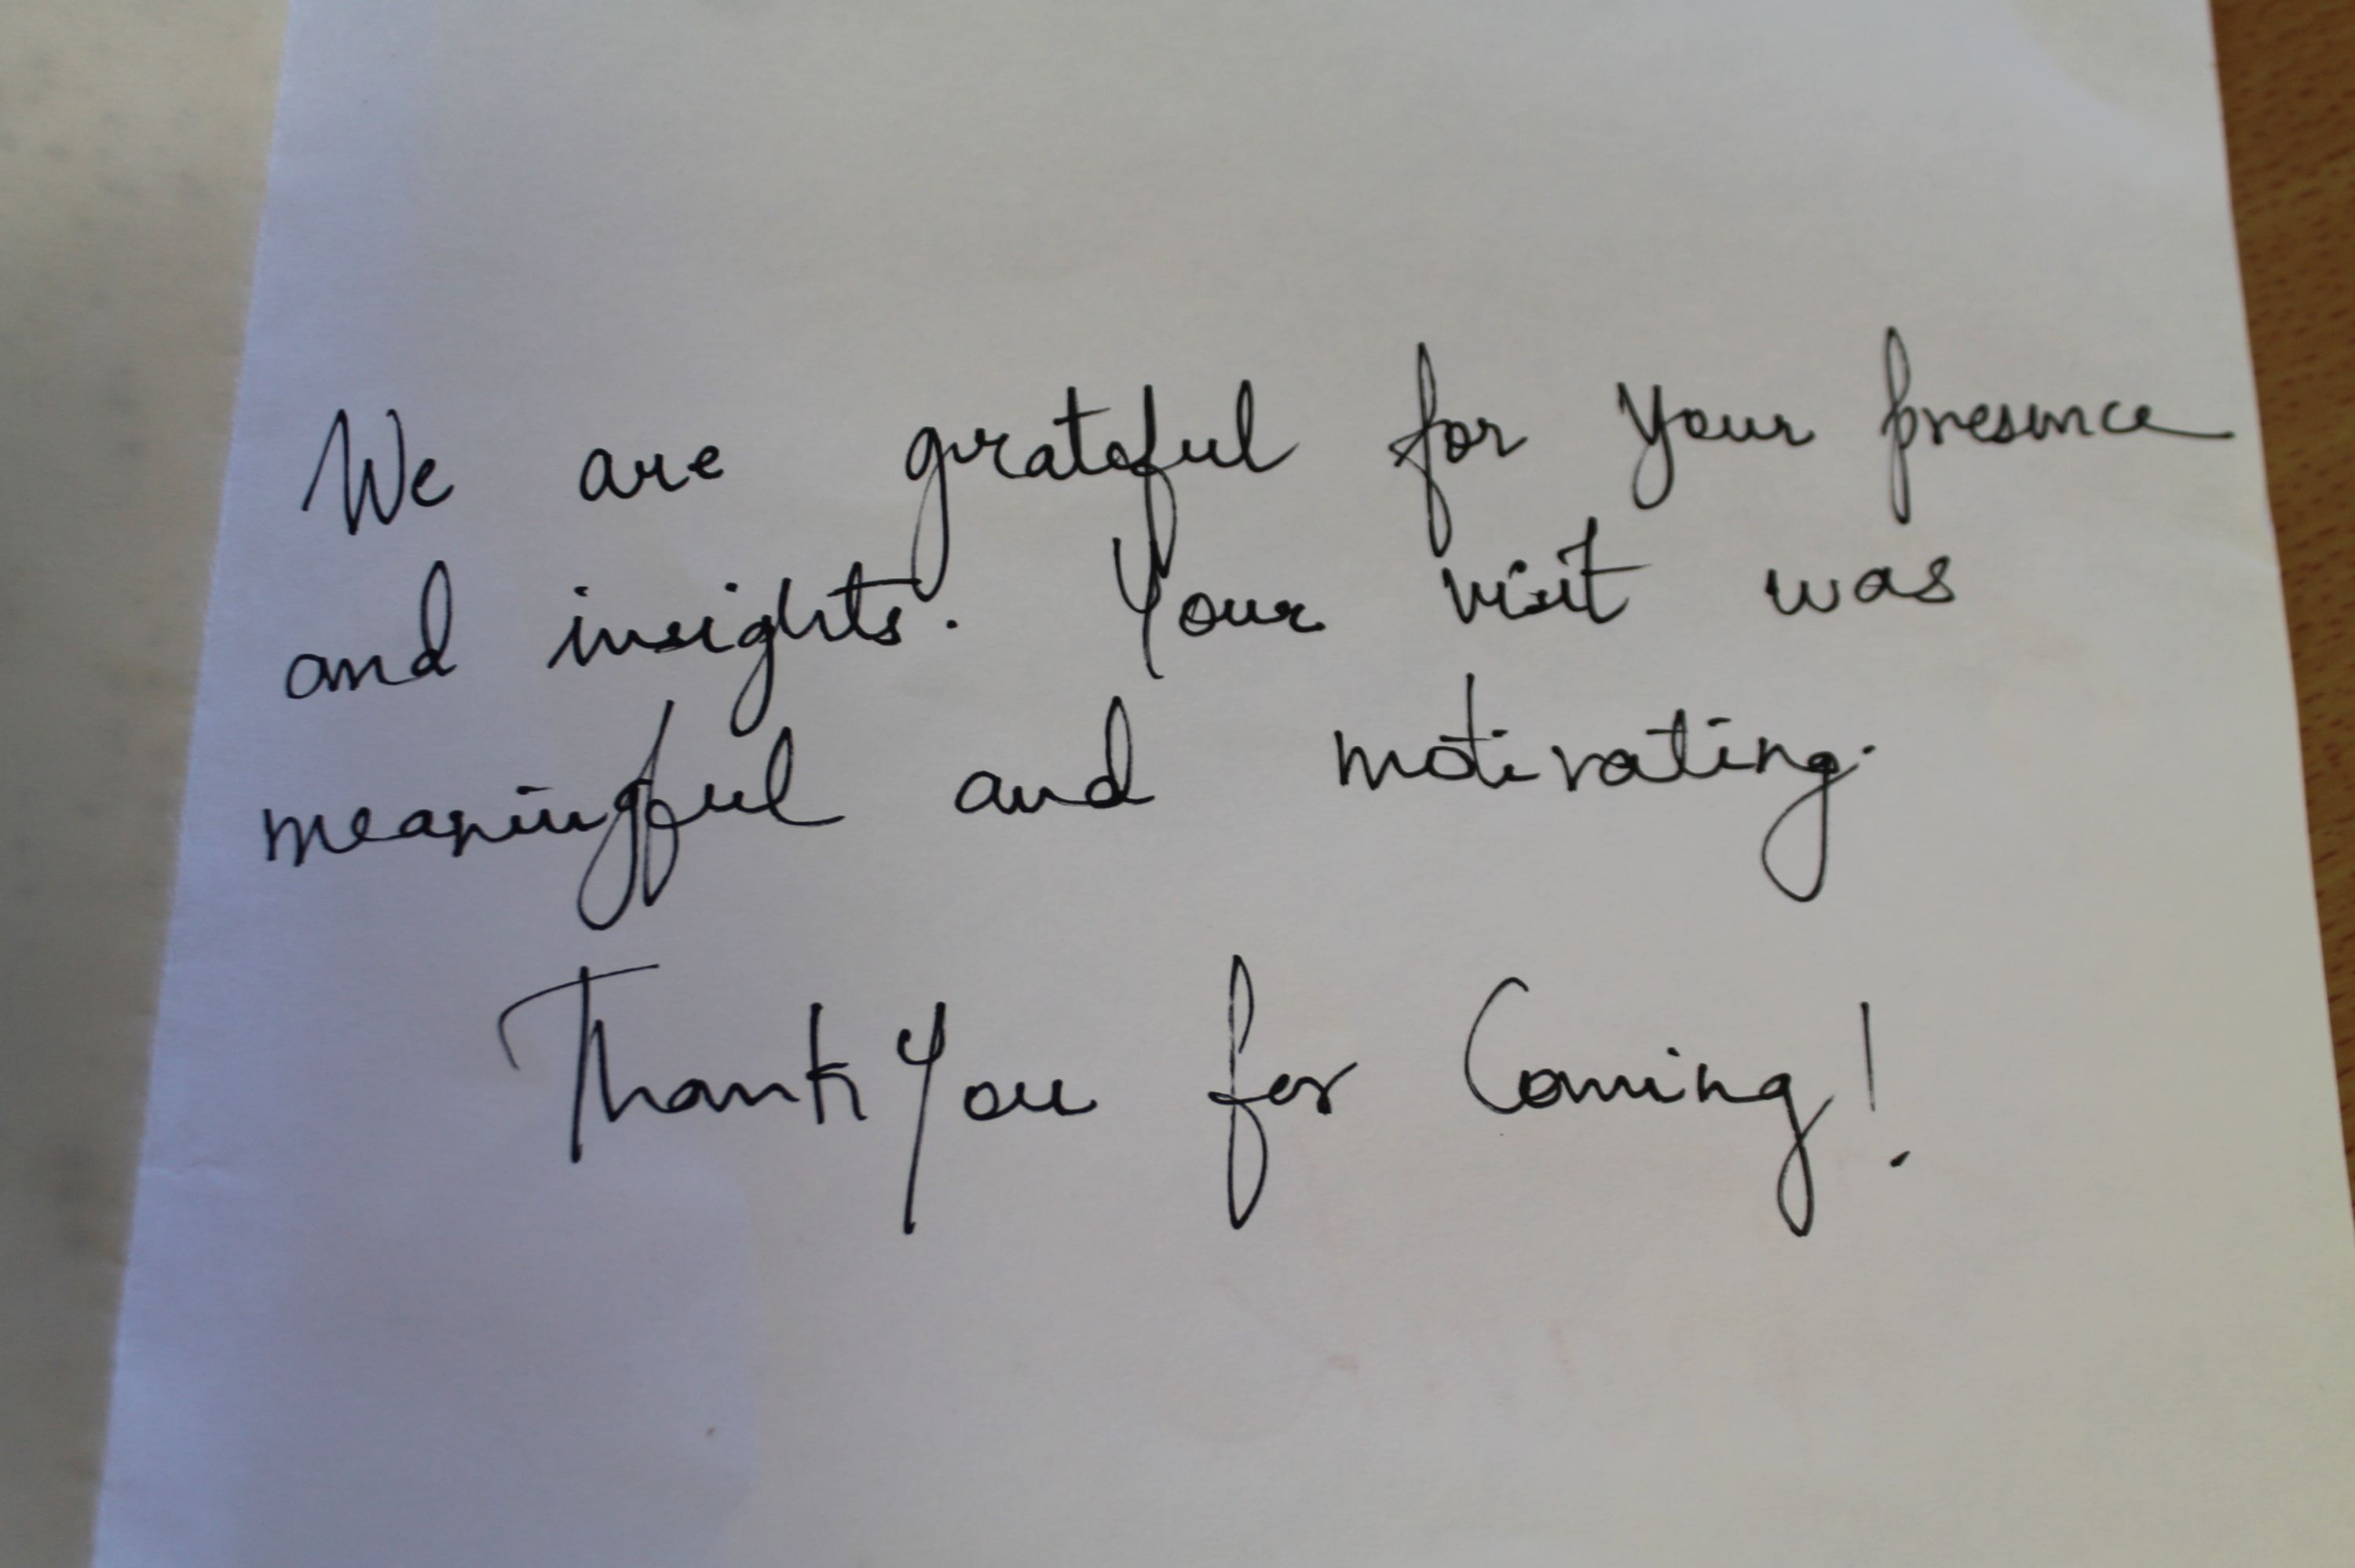 We are grateful for your presence
and insights. Your visit was
meaningful and motivating.
Thank You for Coming!